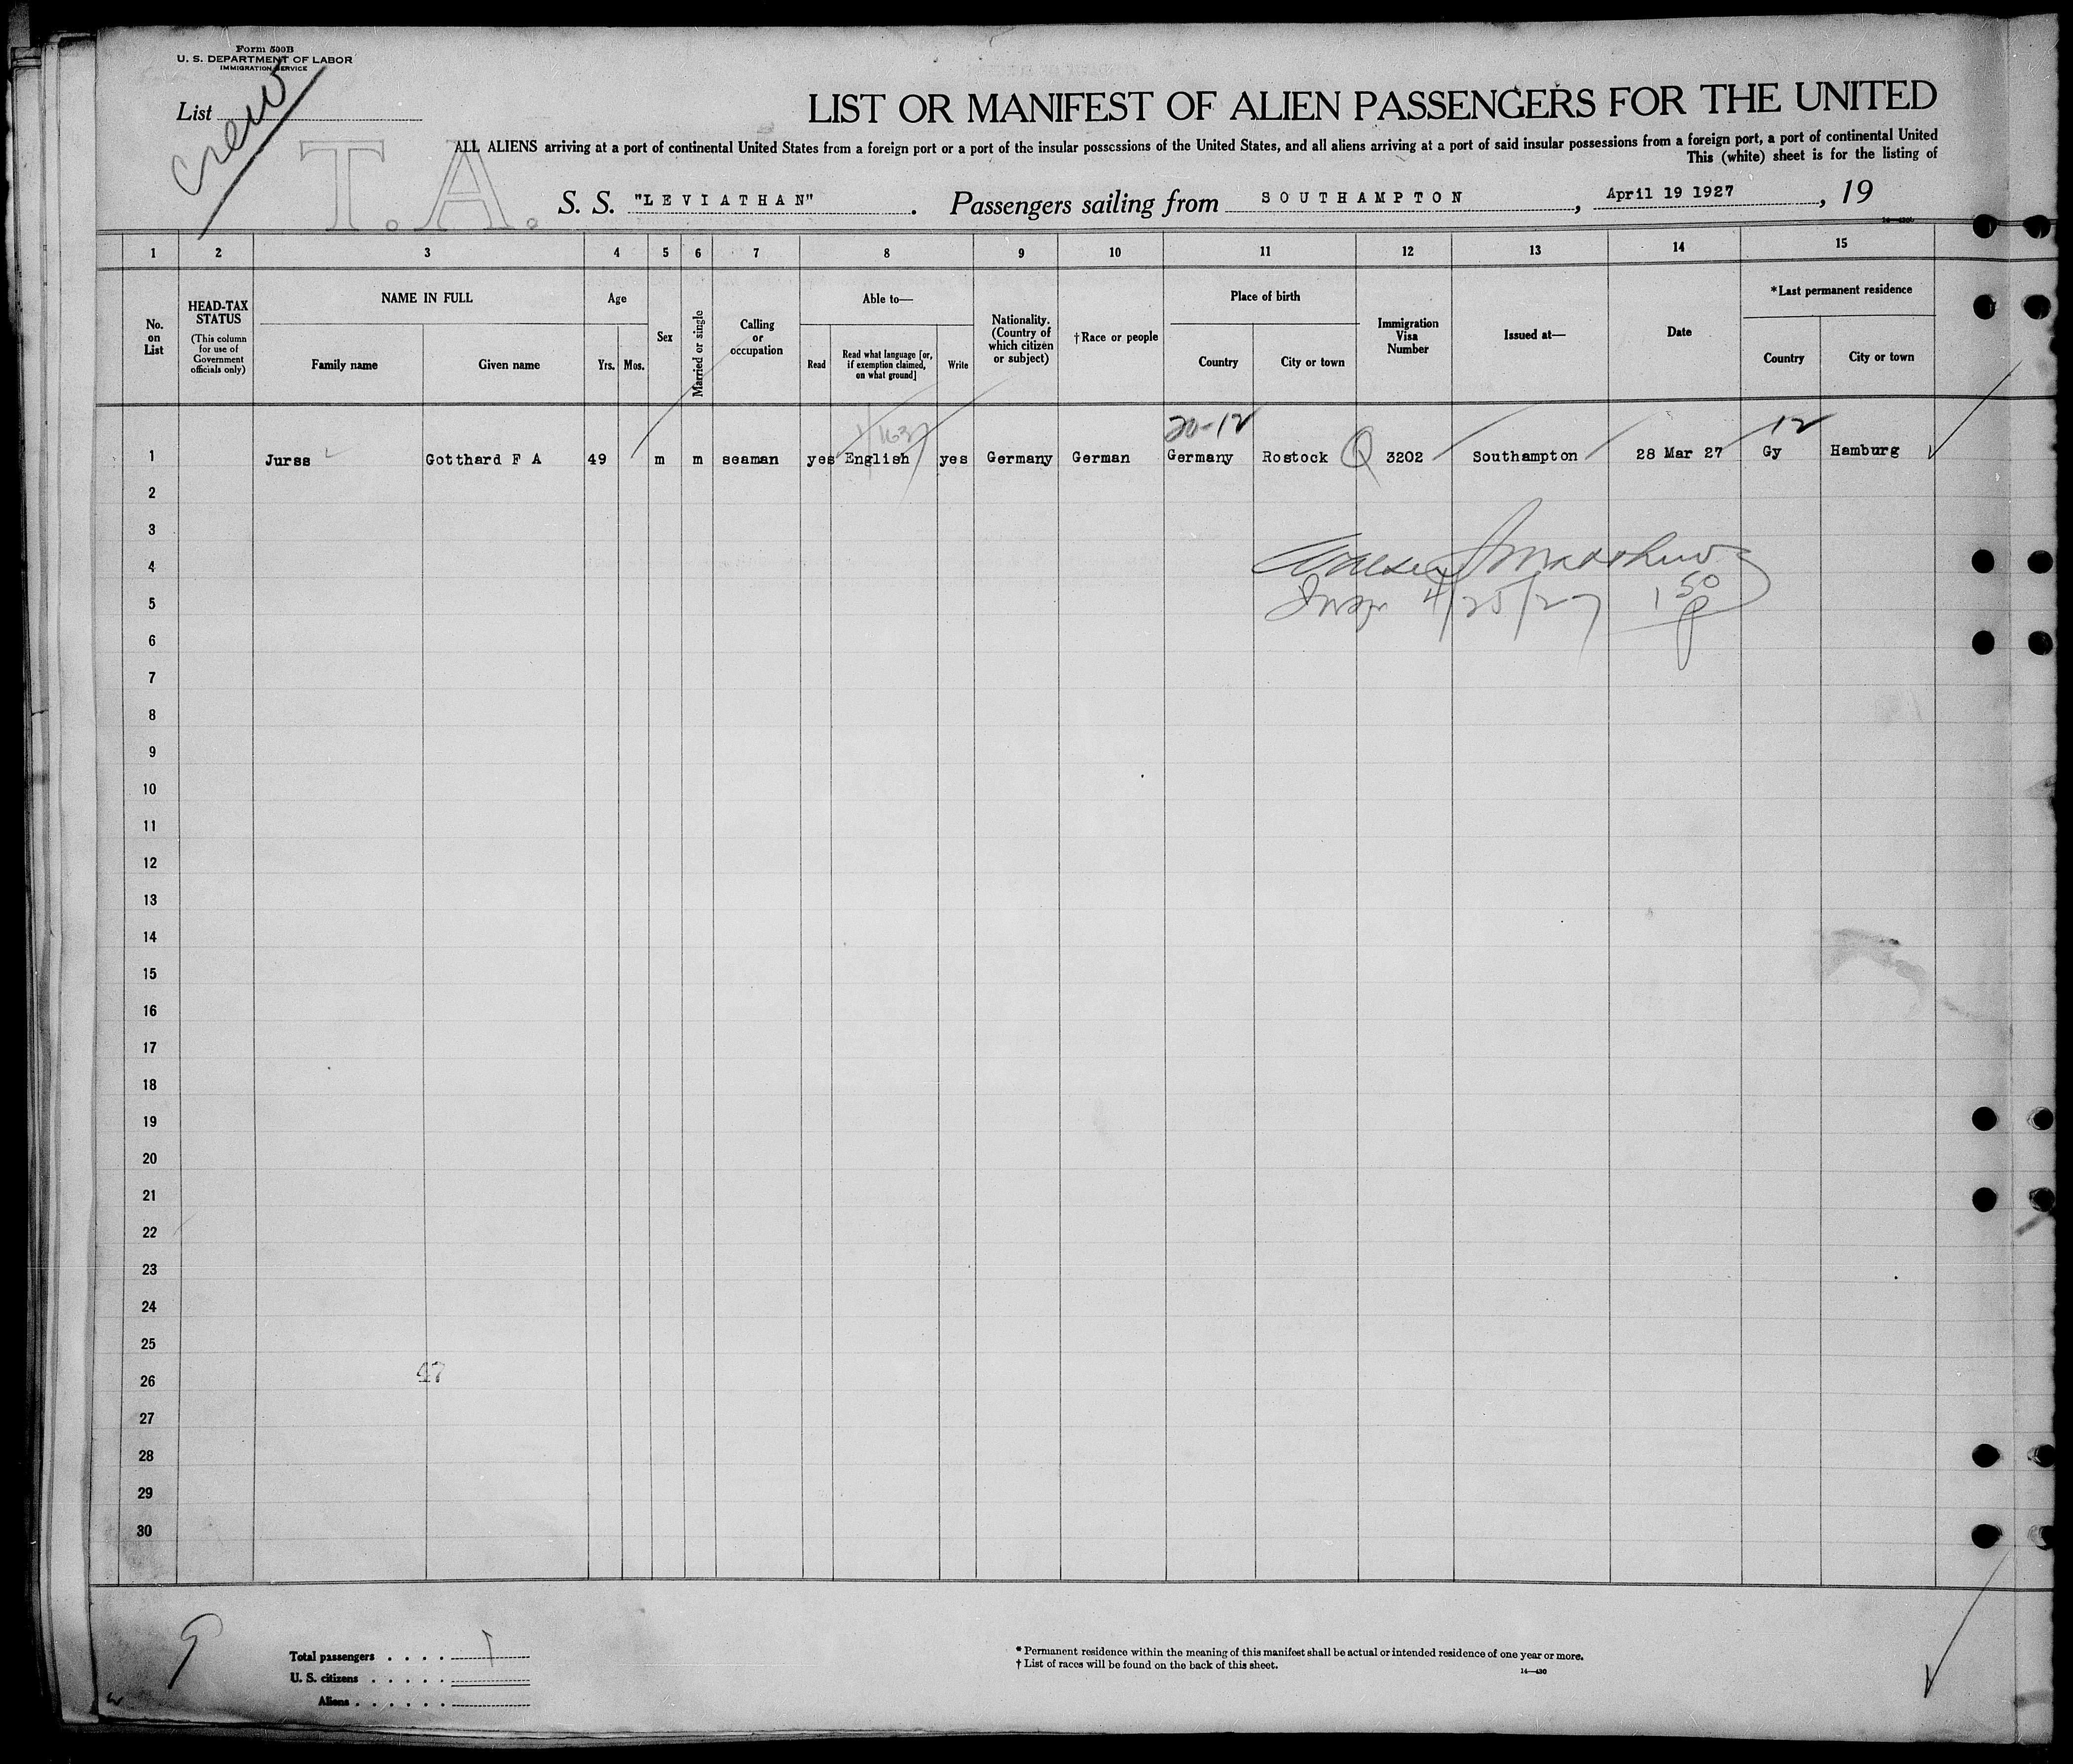 Form 500B
U. S. DEPARTMENT OF LABOR
IMMIGRATION SERVICE
List
Crew
T. A.
LIST OR MANIFEST OF ALIEN PASSENGERS FOR THE UNITED
ALL ALIENS arriving at a port of continental United States from a foreign port or a port of the insular possessions of the United States, and all aliens arriving at a port of said insular possessions from a foreign port, a port of continental United
This (white) sheet is for the listing of
S. S. "LEVIATHAN". Passengers sailing from SOUTHAMPTON, April 19 1927, 19
1 2 3 4 5 6 7 8 9 10 11 12 13 14 15
No. on List
HEAD-TAX STATUS (This column for use of Government officials only)
NAME IN FULL
Family name Given name
Age
Yrs. Mos.
Sex
Married or single
Calling or occupation
Able to—
Read Read what language [or, if exemption claimed, on what ground] Write
Nationality. (Country of which citizen or subject)
†Race or people
Place of birth
Country City or town
Immigration Visa Number
Issued at—
Date
*Last permanent residence
Country City or town
20-12 12
1 Jurss Gotthard F A 49 m m seaman yes English yes Germany German Germany Rostock Q 3202 Southampton 28 Mar 27 Gy Hamburg
2
3
4
5 4/25/27 1 50
6
7
8
9
10
11
12
13
14
15
16
17
18
19
20
21
22
23
24
25
26 47
27
28
29
30
Total passengers . . . . 1
U. S. citizens . . . . .
Aliens . . . . . .
* Permanent residence within the meaning of this manifest shall be actual or intended residence of one year or more.
† List of races will be found on the back of this sheet.
14—430